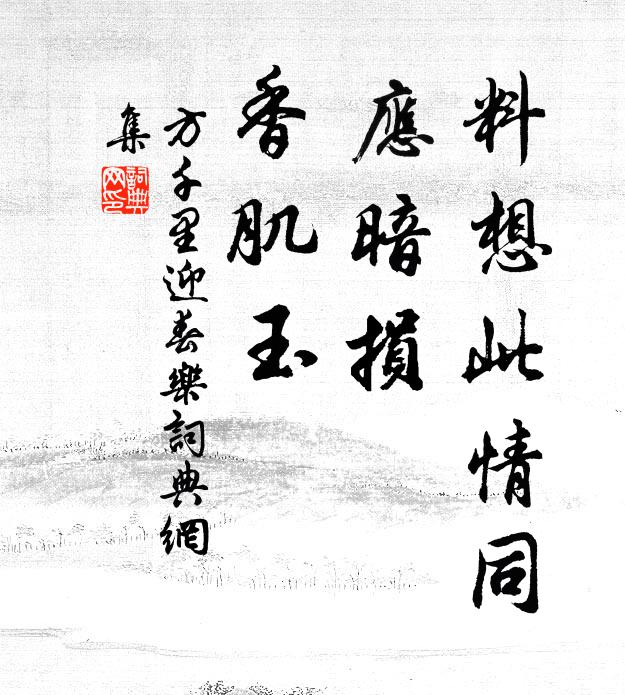 料想此情同
應暗損
香肌玉
方千里迎春樂詞典網
集
詞典
网印